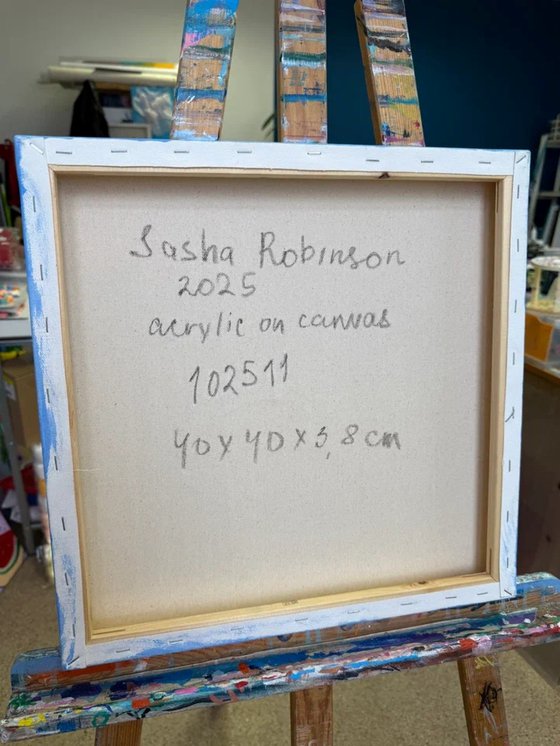 Sasha Robinson
2025
acrylic on canvas
102511
40x40x3,8 cm